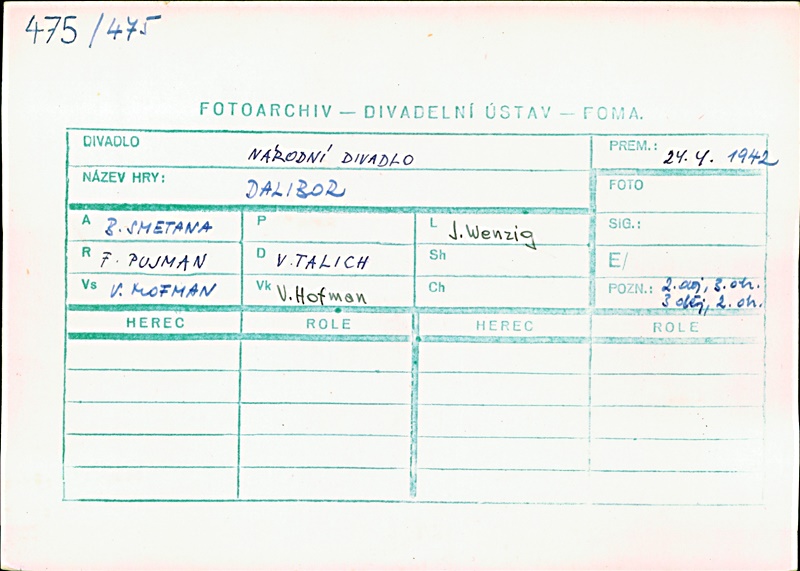 475/475
FOTOARCHIV — DIVADELNÍ ÚSTAV — FOMA.
DIVADLO NÁRODNÍ DIVADLO PREM.: 24. 4. 1942
NÁZEV HRY: DALIBOR FOTO
A B. SMETANA P L J. Wenzig SIG.:
R F. PUJMAN D V. TALICH Sh E/
Vs V. HOFMAN Vk V. Hofman Ch POZN.: 2. děj, 3. ob.
3 děj, 2. ob.
HEREC ROLE HEREC ROLE